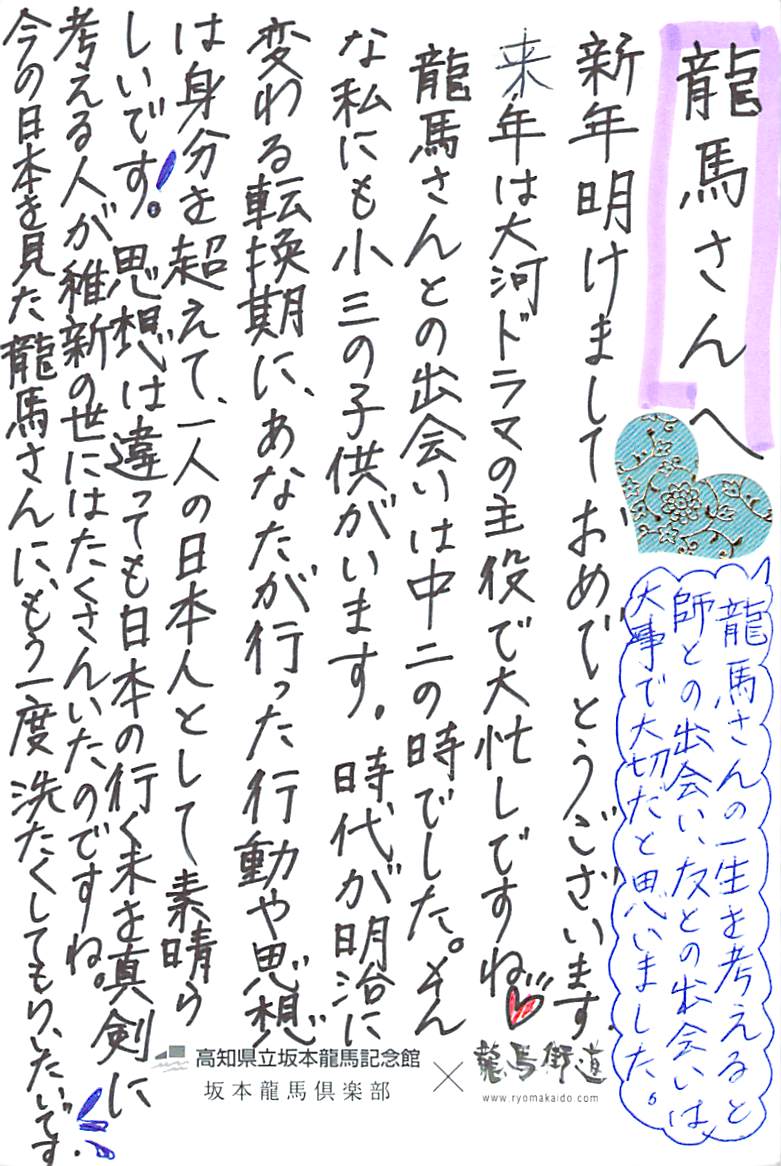 龍馬さんへ
龍馬さんの一生を考えると
師との出会い、友との出会いは
大事で大切だと思いました。
新年明けましておめでとうございます。
来年は大河ドラマの主役で大忙しですね
龍馬さんとの出会いは中二の時でした。そん
な私にも小三の子供がいます。時代が明治に
変わる転換期に、あなたが行った行動や思想
は身分を超えて、一人の日本人として素晴ら
しいです。思想は違っても日本の行く末を真剣に
考える人が維新の世にはたくさんいたのですね。
今の日本を見た龍馬さんに、もう一度洗たくしてもらいたいです。
高知県立坂本龍馬記念館
坂本龍馬倶楽部
×
龍馬街道
www.ryomakaido.com